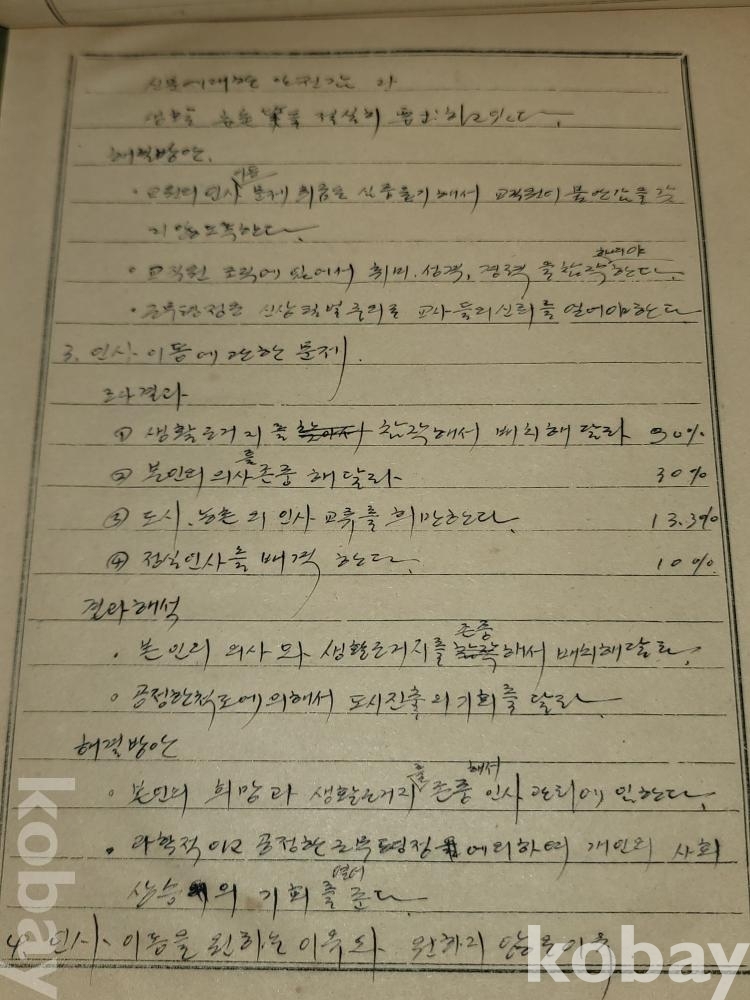 신분에대한 안전감과
해결방안.
• 교원의 인사 이동 문제 해서 교직원이 불안감을 갖
지 않도록한다.
• 교직원 조직에 있어서 취미. 성격, 경력을 참작 하여야 한다.
• 근무평정은 신상필벌 주의로 교사들의 신뢰를 얻어야 한다
3. 인사이동에 관한 문제.
조사결과
① 생활근거지를 참작해서 배치해 달라 90%
② 본인의 의사를 존중해달라 30%
③ 도시.농촌의 인사교류를 희망한다. 13.3%
④ 정실인사를 배격 한다. 10%
결과해석
• 본인의 의사와 생활근거지를 존중해서 배치해달라.
• 공정한척도에의해서 도시진출의 기회를 달라
해결방안
• 본인의 희망과 생활근거지를 존중해서 인사관리에 임한다.
• 과학적이고 공정한 근무평정에 의하여 개인의 사회
상승의 기회를 열어준다
4. 인사이동을 원하는 이유와 원하지 않는 이유
kobay
kobay